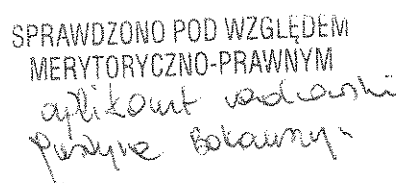 SPRAWDZONO POD WZGLĘDEM
MERYTORYCZNO-PRAWNYM
aplikant radcowski